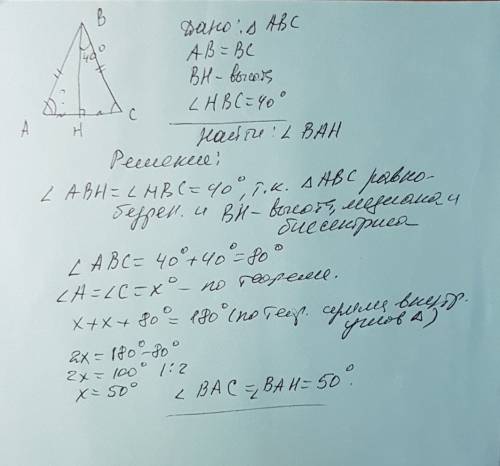 B
40°
A
H
C
Дано: Δ ABC
AB = BC
BH - высота
∠HBC = 40°
Найти: ∠ BAH
Решение:
∠ ABH = ∠HBC = 40°, т.к. Δ ABC равно-
бедрен. и BH - высота, медиана и
биссектриса
∠ ABC = 40° + 40° = 80°
∠A = ∠C = x° - по теореме.
x + x + 80° = 180° (по теор. сумма внутр.
углов Δ)
2x = 180° - 80°
2x = 100° |:2
x = 50°
∠ BAC = ∠BAH = 50°.